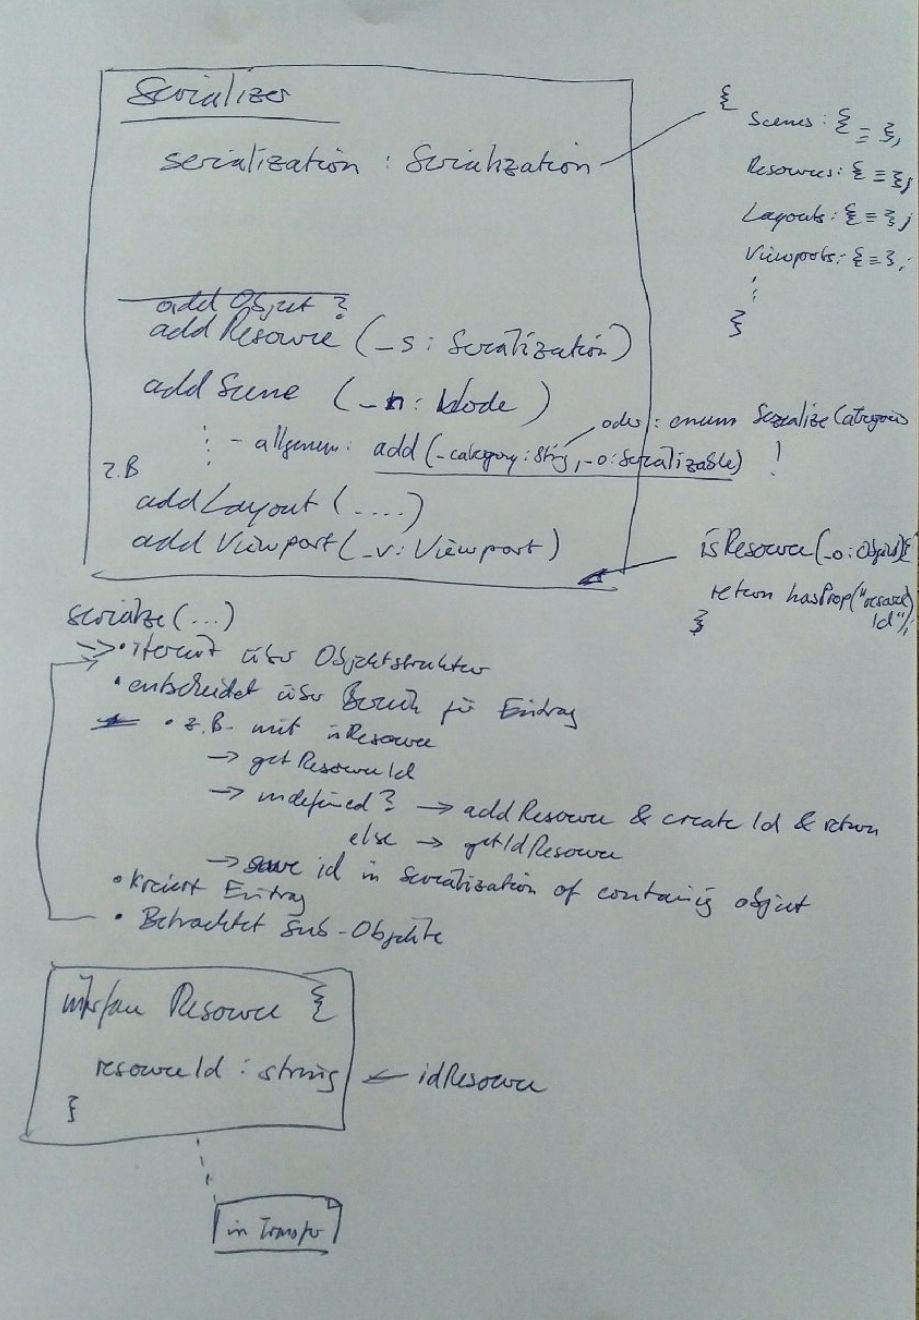 Serializer
serialization : Serialization
{
Scenes : { ≡ },
Resources : { ≡ },
Layouts : { ≡ },
Viewports : { ≡ },
:
}
add Object ?
add Resource (_s : Serialization)
add Scene (_n : Node)
: - allgemein: add (_category : String, _o : Serializable) !
oder : enum Serialize Categories
z.B
add Layout (....)
add Viewport (_v : Viewport)
isResource (_o : Object) {
return hasProp("resource
Id");
}
serialize (...)
• iteriert über Objektstruktur
• entscheidet über Bereich für Eintrag
• z.B. mit isResource
→ getResourceId
→ undefined ? → addResource & create Id & return
else → getIdResource
→ save id in Serialization of containing object
• Kreiert Eintrag
• Betrachtet Sub-Objekte
interface Resource {
resourceId : string ← idResource
}
in Transfer